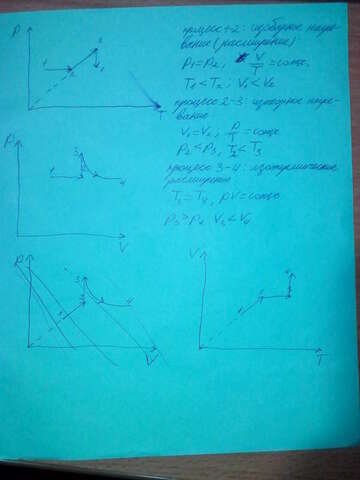 процесс 1-2: изобарное нагре-
вание (расширение):
P₁=P₂; V/T=const.
T₁<T₂; V₁<V₂
процесс 2-3: изохорное нагре-
вание
V₁=V₂, P/T=const
P₂<P₃, T₂<T₃
процесс 3-4: изотермическое
расширение
T₃=T₄, PV=const
P₃>P₄ V₃<V₄
P
1
2
3
4
T
P
1
3
4
V
P
1
2
3
4
V
V
1
2
3
4
T